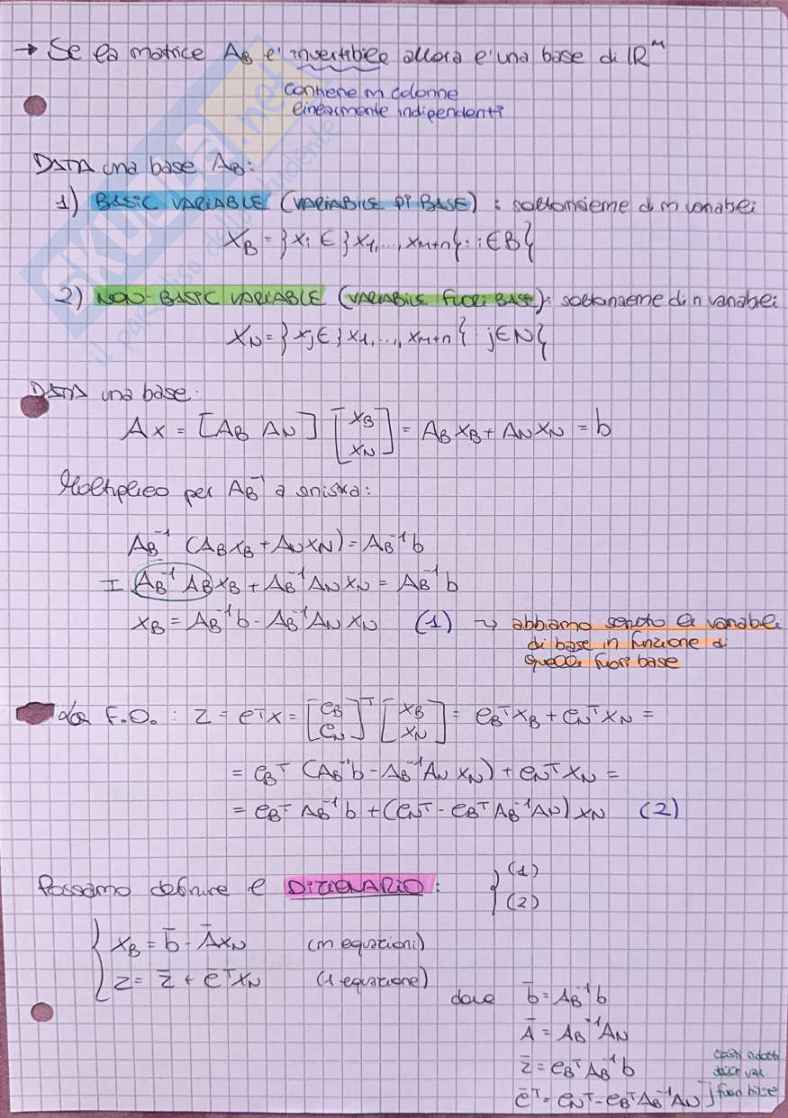 → Se la matrice A_B e' invertibile allora e' una base di ℝ^m
contiene m colonne
linearmente indipendenti
DATA una base A_B:
1) BASIC VARIABLE (VARIABILE DI BASE): sottoinsieme di m variabili
X_B = {x_i ∈ {x_1, ..., x_{m+n}} : i ∈ B}
2) NON-BASIC VARIABLE (VARIABILE FUORI BASE): sottoinsieme di n variabili
X_N = {x_j ∈ {x_1, ..., x_{m+n}} : j ∈ N}
DATA una base:
Ax = [A_B A_N] [x_B x_N] = A_B x_B + A_N x_N = b
Moltiplico per A_B^-1 a sinistra:
A_B^-1 (A_B x_B + A_N x_N) = A_B^-1 b
I A_B^-1 A_B x_B + A_B^-1 A_N x_N = A_B^-1 b
x_B = A_B^-1 b - A_B^-1 A_N x_N (1) → abbiamo scritto le variabili
di base in funzione di
quelle fuori base
F.O. : z = c^T x = [c_B c_N]^T [x_B x_N] = c_B^T x_B + c_N^T x_N =
= c_B^T (A_B^-1 b - A_B^-1 A_N x_N) + c_N^T x_N =
= c_B^T A_B^-1 b + (c_N^T - c_B^T A_B^-1 A_N) x_N (2)
Possiamo definire il DIZIONARIO: { (1)
(2)
{ x_B = b̄ - Āx_N (m equazioni)
z = z̄ + c̄^T x_N (1 equazione)
dove b̄ = A_B^-1 b
Ā = A_B^-1 A_N
z̄ = c_B^T A_B^-1 b
c̄^T = c_N^T - c_B^T A_B^-1 A_N
costi ridotti
delle var
fuori base
SKUOLA.net
il paradiso dello studente